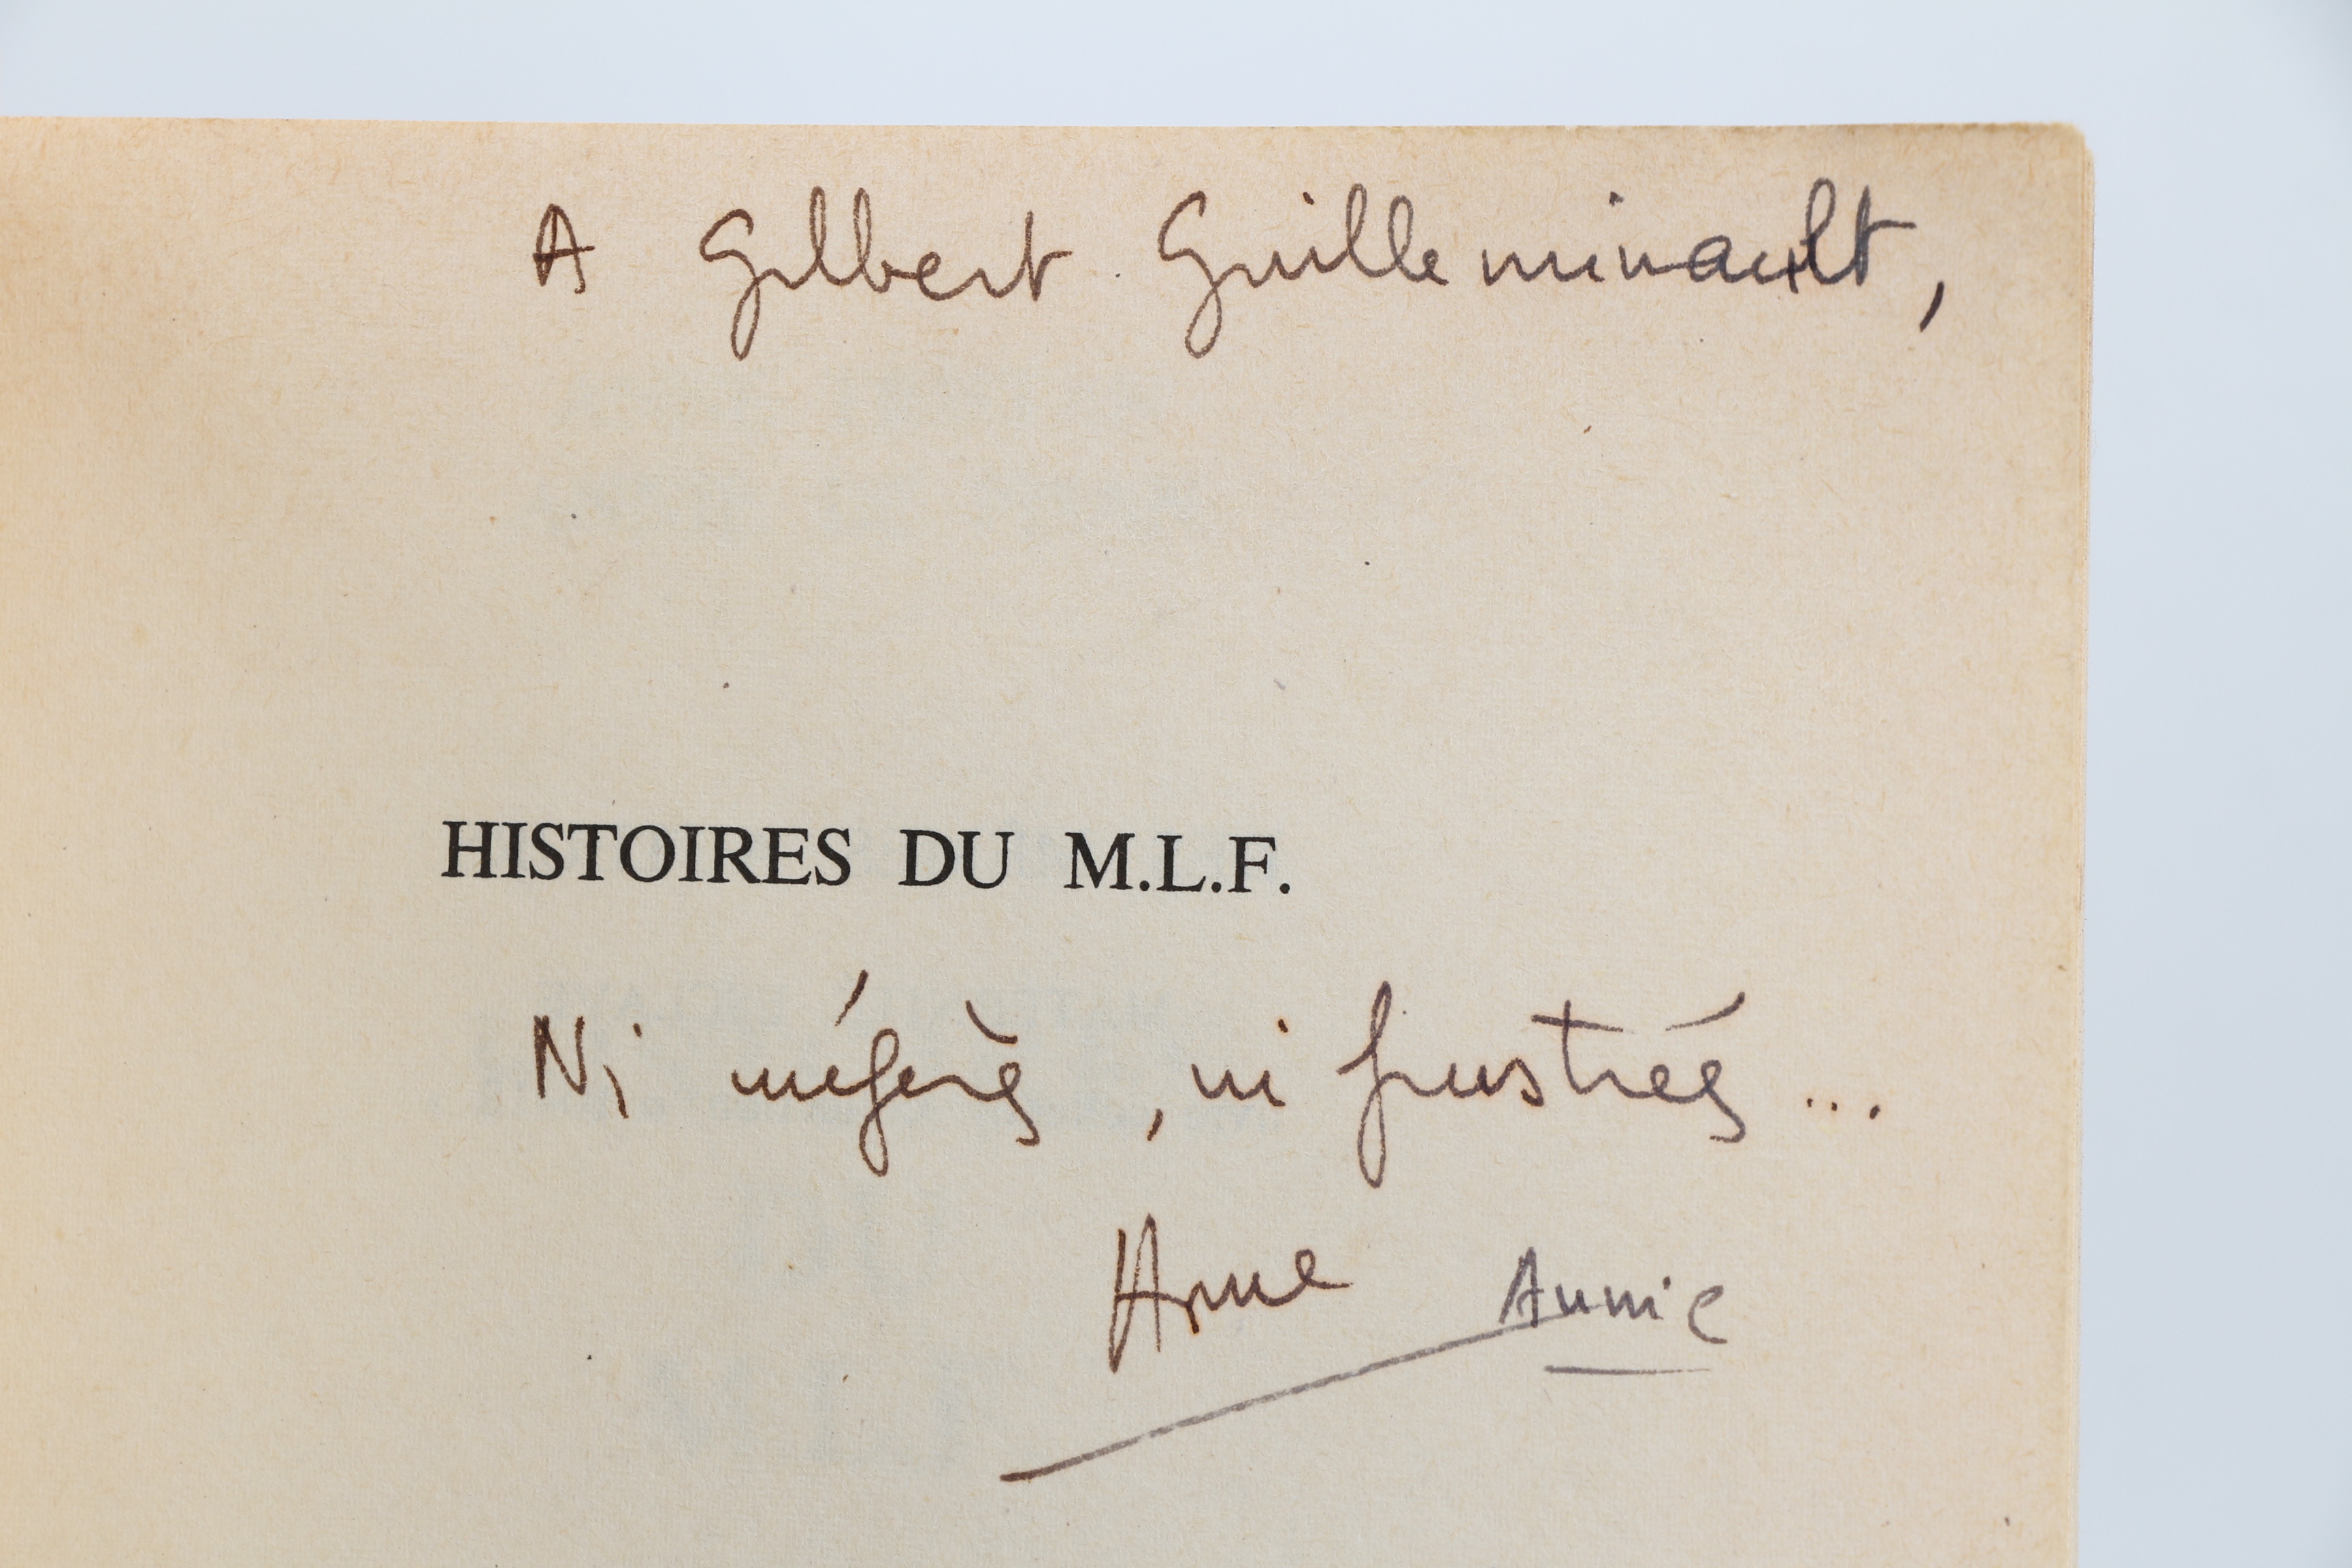 A Gilbert Guilleminault,
HISTOIRES DU M.L.F.
Ni mégères, ni frustrées...
Anne Annie